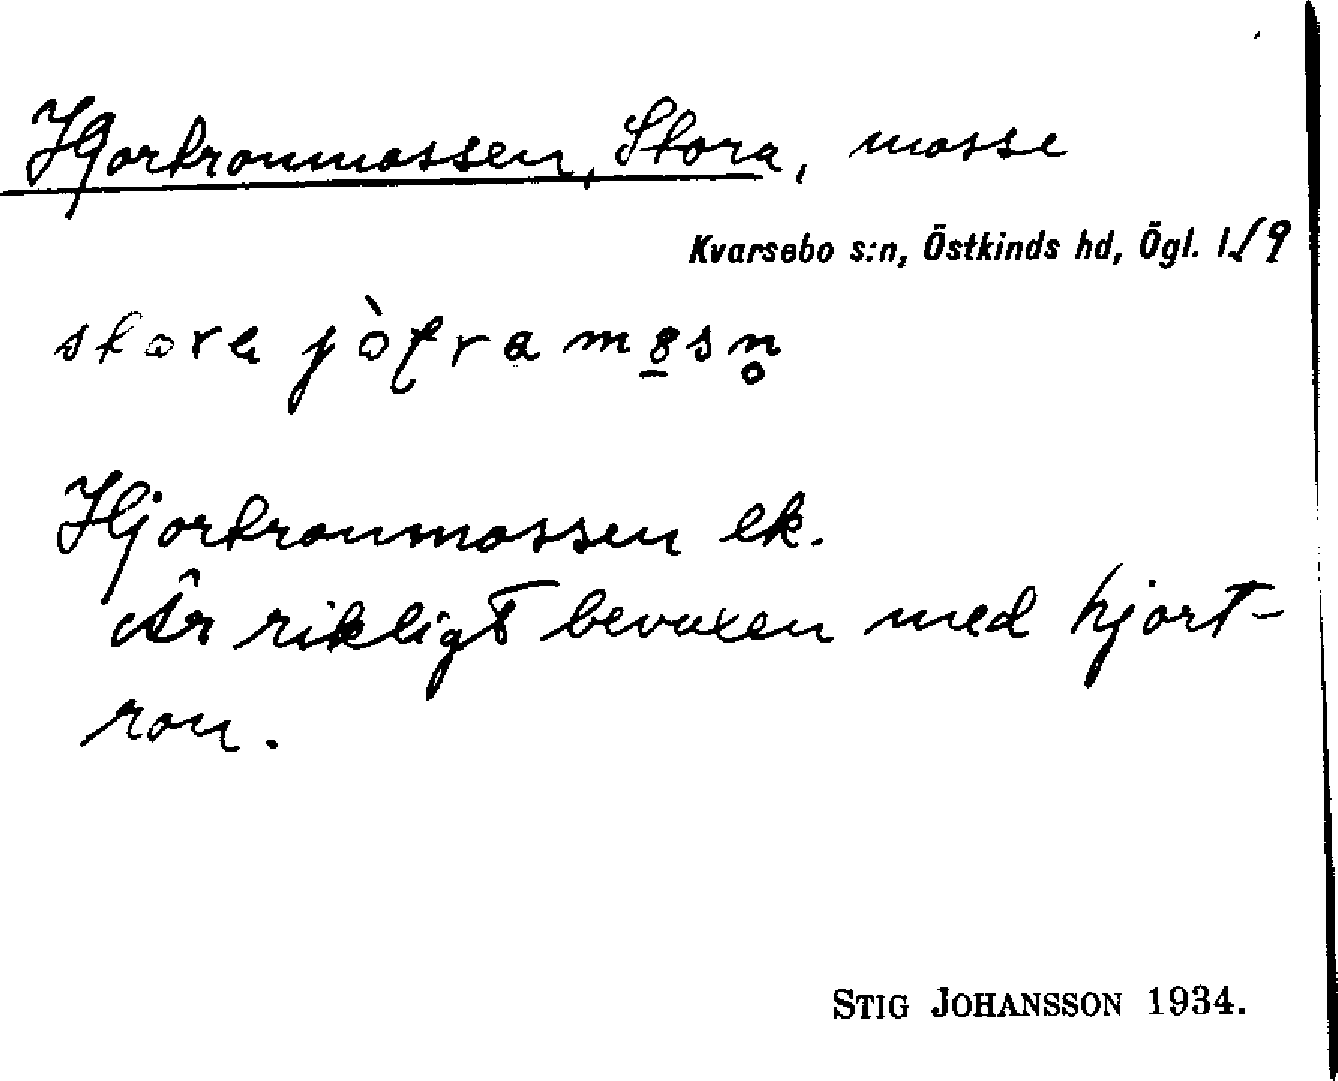 Hjortronmossen, Stora, mosse
Kvarsebo s:n, Östkinds hd, Ögl. l./9
Hjortronmossen ek.
Är rikligt bevuxen med hjort-
ron.
STIG JOHANSSON 1934.